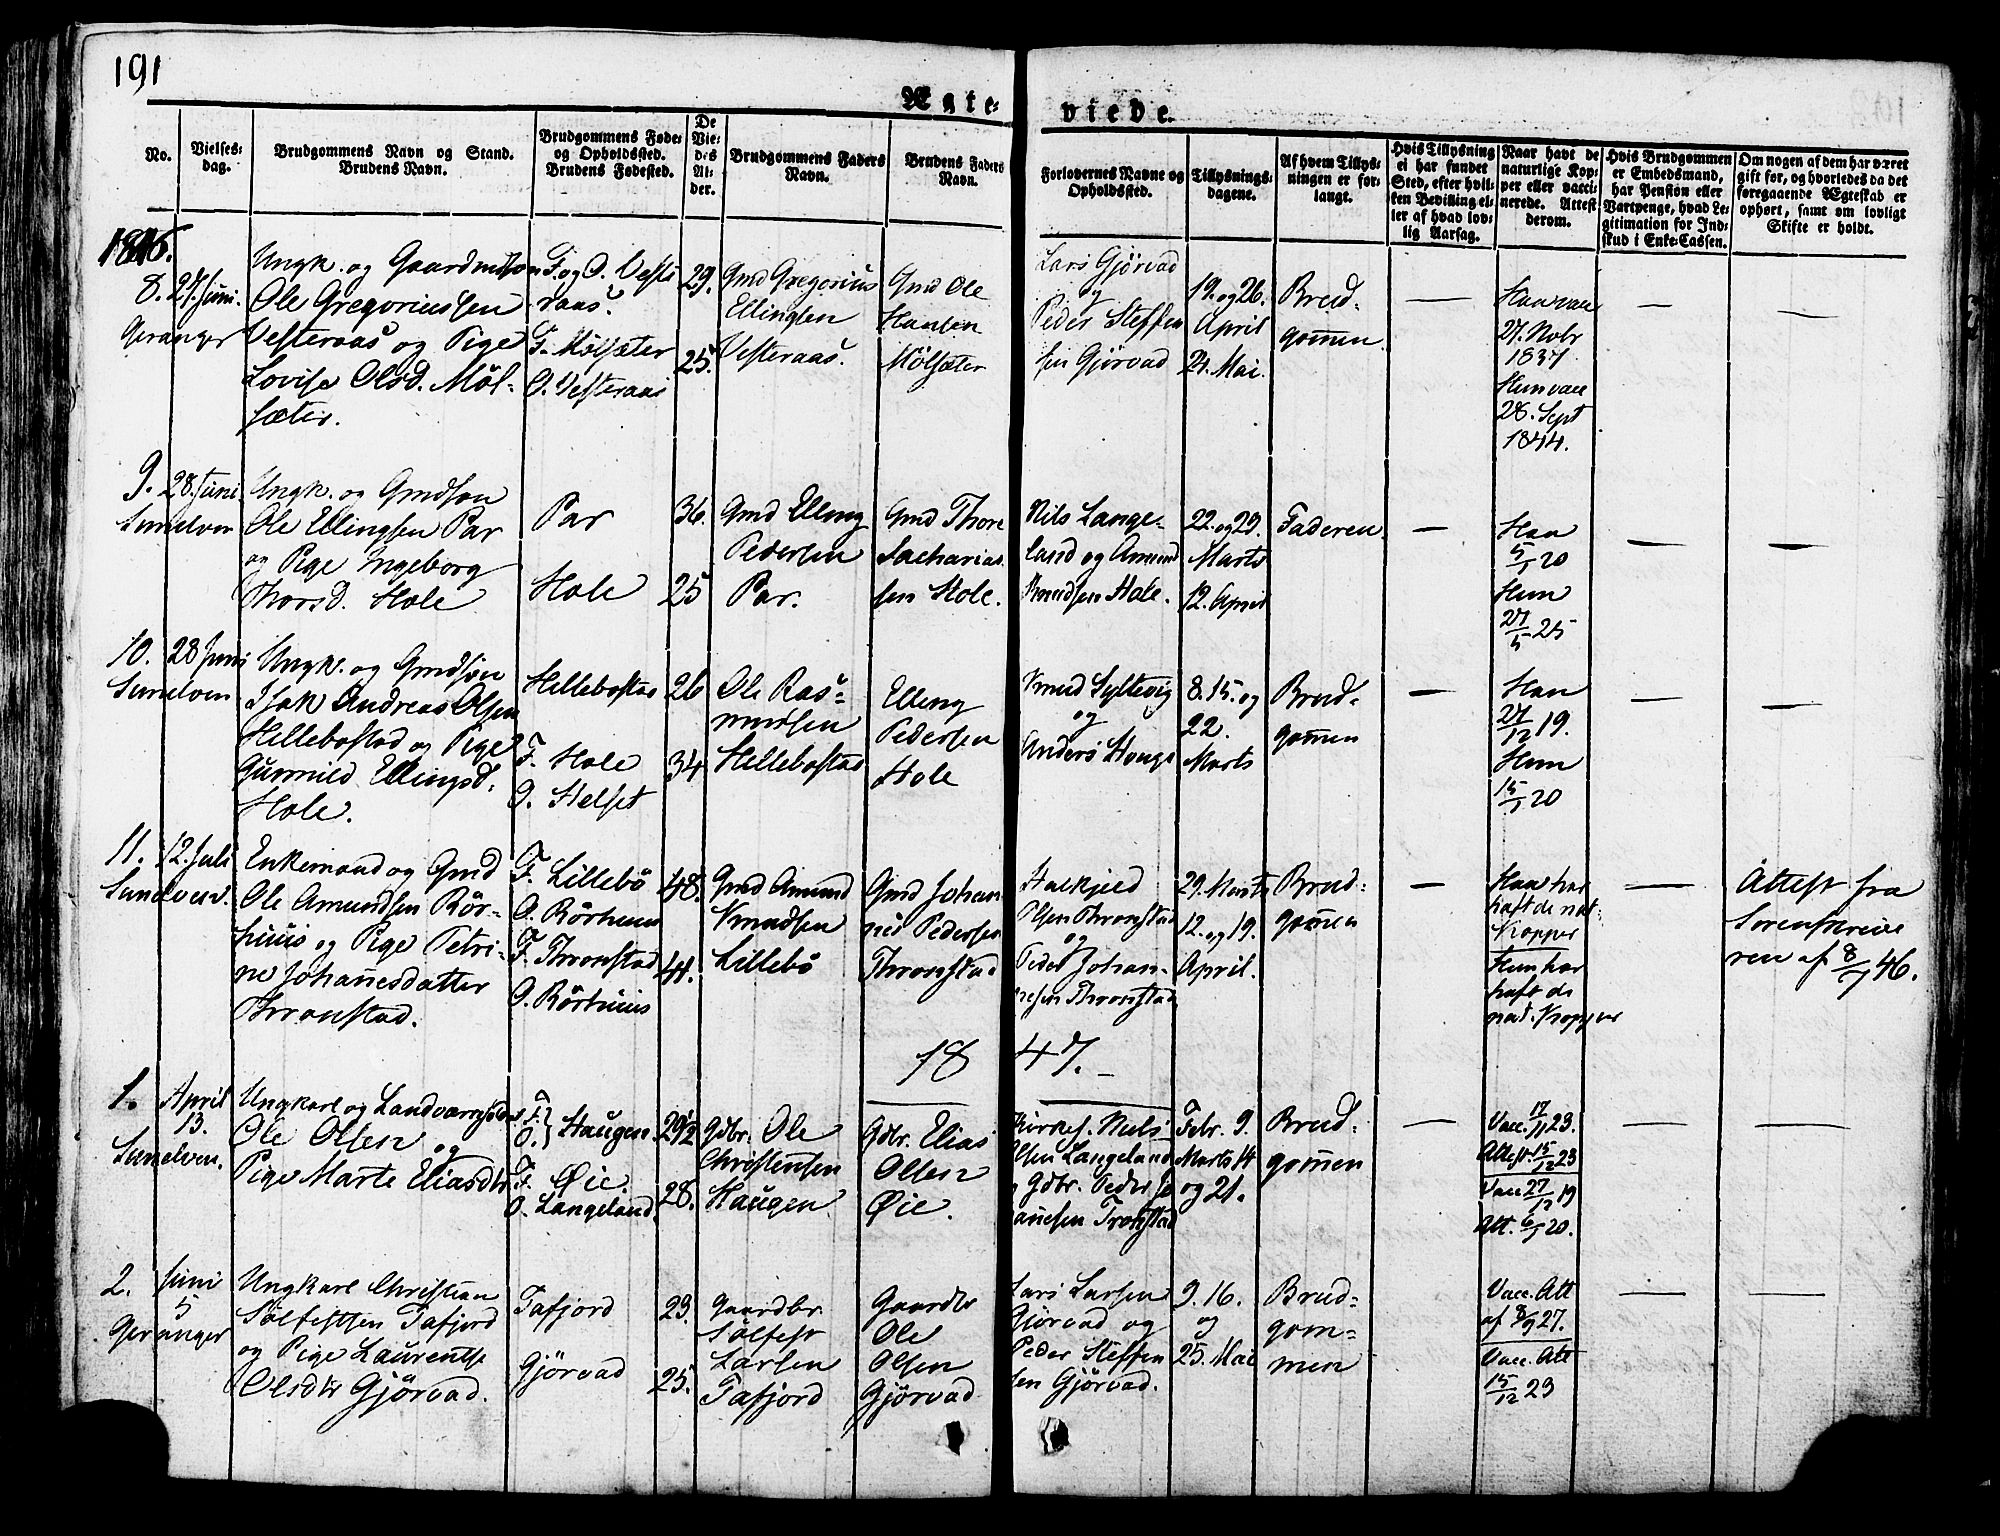 191
Ægte-
viede.
No.
Vielses-
dag.
Brudgommens Navn og Stand.
Brudens Navn.
Brudgommens Føde-
og Opholdssted.
Brudens Fødested.
De
Vie-
des
Al-
der.
Brudgommens Faders
Navn.
Brudens Faders
Navn.
Forlovernes Navne og
Opholdssted.
Tillysnings-
dagene.
Af hvem Tillys-
ningen er for-
langt.
Hvis Tillysning
ei har fundet
Sted, efter hvil-
ken Bevilling el-
ler af hvad lov-
lig Aarsag.
Naar havt de
naturlige Kop-
per eller vacci-
nerede. Attest
derom.
Hvis Brudgommen
er Embedsmand,
har Pension eller
Vartpenge, hvad Le-
gitimation for Ind-
skud i Enke-Cassen.
Om nogen af dem har været
gift før, og hvorledes da det
foregaaende Ægteskab er
ophørt, samt om lovligt
Skifte er holdt.
1846.
8. 27. Juni.
Geranger
Ungk. og Gaardmdsøn
Ole Gregoriussen
Vesteraas og Pige
Lovise Olsd. Møl-
sæter.
F. og O. Veste
raas.
F. Mølsæter
O. Vesteraas
29.
25.
Gmd Gregorius
Ellingsen
Vesteraas.
Gmd Ole
Hansen
Mölsæter
Lars Gjörvad
og
Peder Steffen
sen Gjörvad
19. og 26.
April
24. Mai.
Brud-
gommen.
Han vac
27. Nobr
1837
Hun vac
28. Sept
1844.
9. 28. Juni.
Sunelven
Ungk. og Gmdsøn
Ole Ellingsen Par
og Pige Ingeborg
Thorsd. Hole
Par
Hole
36.
25
Gmd Elling
Pedersen
Par.
Gmd Thore
Zacharias
sen Hole.
Nils Lange-
land og Amund
Knudsen Hole.
22. og 29.
Marts
12. April
Faderen
Han
5/1 20
Hun
27/5 25
10. 28 Juni
Sunelven
Ungk. og Gmdsøn
Isak Andreas Olsen
Hellebostad og Pige
Gunnild Ellingsd.
Hole.
Hellebostad
F. Hole
O. Helset
26
34
Ole Ras-
mussen
Hellebostad
Elling
Pedersen
Hole
Knud Syltevig
og
Anders Houge
8. 15. og
22.
Marts
Brud-
gommen
Han
27/12 19.
Hun
15/1 20
11. 12. Juli
Sunelven.
Enkemand og Gmd
Ole Amundsen Rör-
huus og Pige Petri-
ne Johanesdatter
Thronstad.
F. Lillebö
O. Rörhuus
F. Thronstad
O. Rörhuus
48.
41.
Gmd Amund
Knudsen
Lillebö
Gmd Johan-
nes Pedersen
Thronstad
Halkjeld
Olsen Thronstad
og
Peder Johan-
nesen Thronstad
29. Marts
12. og 19.
April.
Brud-
gommen
Han har
haft de nat.
Kopper
Hun har
haft de
nat. Kopper
Attest fra
Sorenskrive
ren af 8/7 46.
18 47.
1. April
13.
Sunelven.
Ungkarl og Landværnssoldat
Ole Olsen og
Pige Marte Eliasdtr
F. O. } Haugen.
F. Øie.
O. Langeland.
29 1/2
28.
Gdbr. Ole
Christensen
Haugen
Gdbr. Elias
Olsen
Øie.
Kirkes. Nils
Olsen Langeland
og Gdbr. Peder Jo
hanesen Tronstad
Febr. 9.
Marts 14
og 21.
Brud-
gommen
Vacc. 17/11 23.
Attest. 15/12 23
Vacc 27/12 19
Att. 6/1 20.
2. Juni
5
Geranger
Ungkarl Christian
Sölfestsen Tafjord
og Pige Laurentse
Olsdtr Gjörvad.
Tafjord
Gjörvad
23.
25.
Gaardbr.
Sölfest
Larsen
Tafjord
Gaardbr
Ole
Olsen
Gjörvad
Lars Larsen
Gjörvad og
Peder Steffen
sen Gjörvad.
9. 16.
og
25. Mai
Brud-
gom-
men
Vacc. Att
af 8/9 27.
Vacc. Att
15/12 23